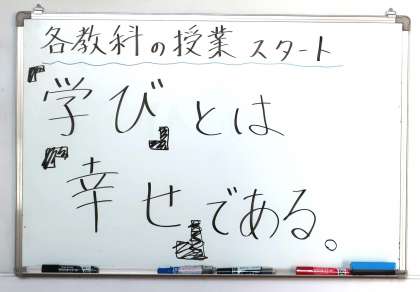 各教科の授業 スタート
『学び』とは
『幸せ』である。